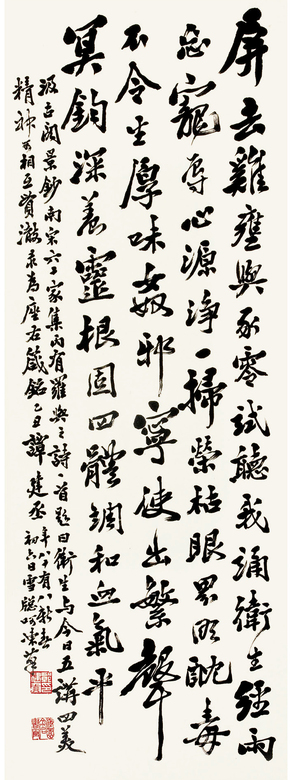 屏去雞壅與豕零試聽我誦衛生經兩
忘寵辱心源淨一掃榮枯眼界明酖毒
不令生厚味邪寧使出繁聲
冥鈞深養靈根固四體調和血氣平
汲古閣景鈔南宋六十家集內有羅與之詩一首題曰衛生与今日五講四美
精神可相互資澂录為座右箴銘乙丑譚建丞
年八十有八新春
初六日雪聰呵凍草